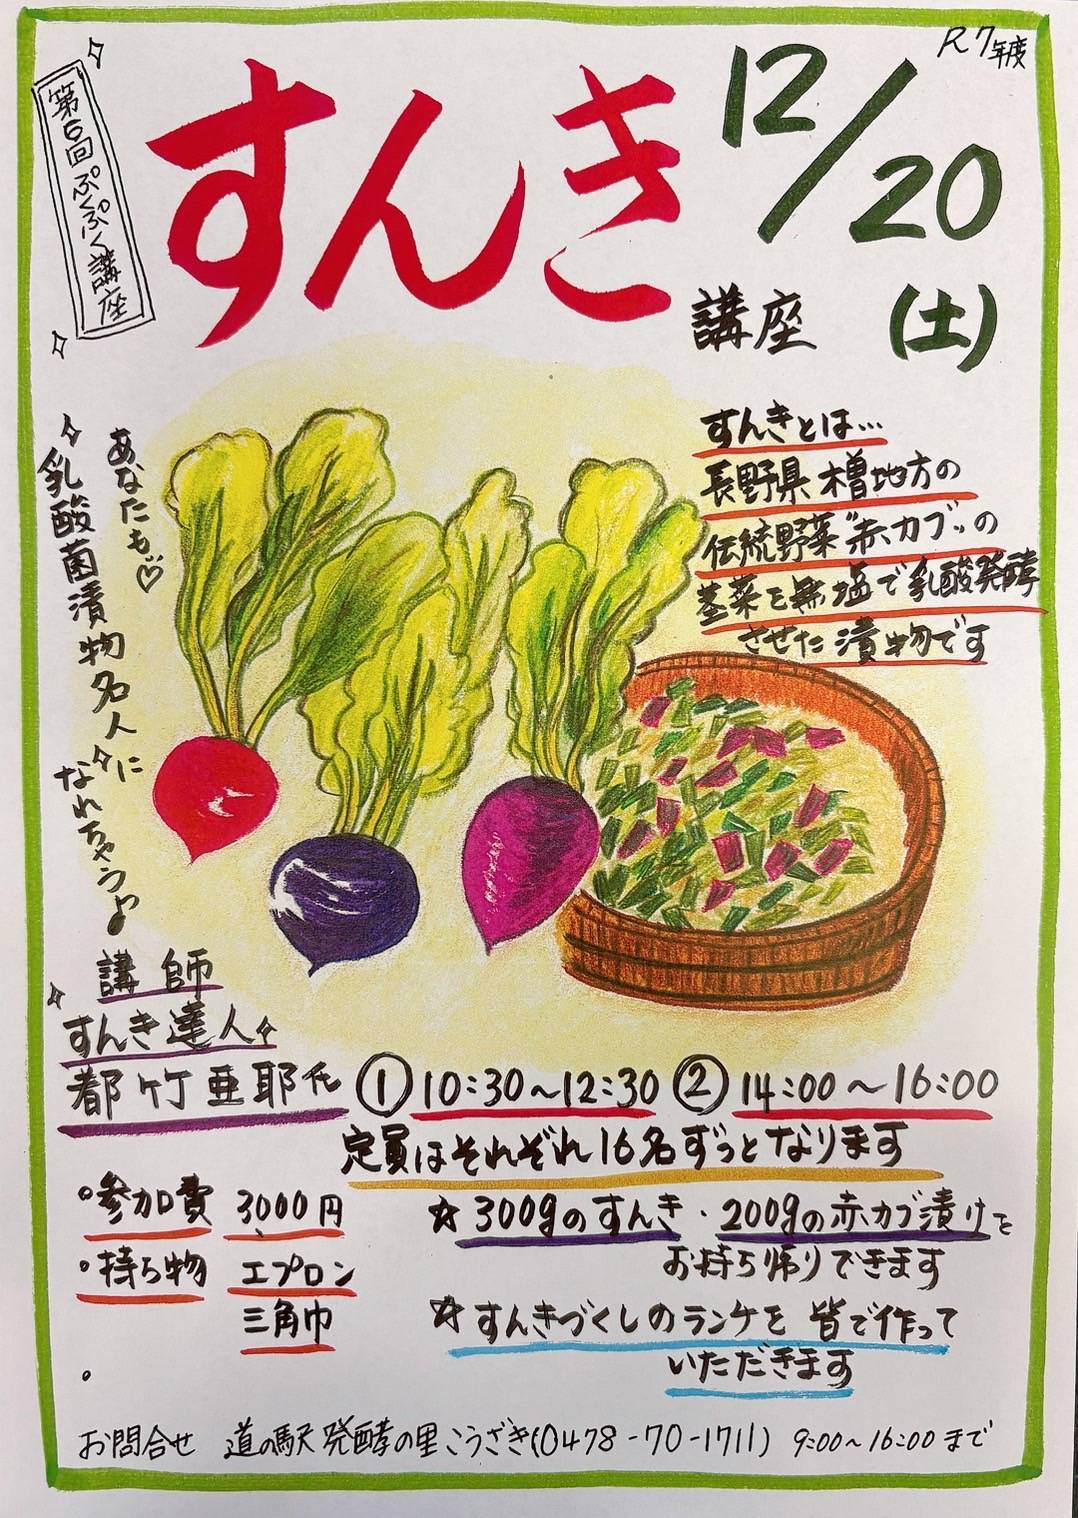 R7年度
第6回 ぷくぷく講座
すんき
講座
12/20
(土)
あなたも♡
乳酸菌漬物名人に
なれちゃうよ
すんきとは…
長野県 木曽地方の
伝統野菜"赤カブ"の
茎菜を無塩で乳酸発酵
させた漬物です
講師
すんき達人
都竹亜耶氏
① 10:30～12:30 ② 14:00～16:00
定員はそれぞれ16名ずつとなります
・参加費 3,000円
・持ち物 エプロン
三角巾
☆300gのすんき・200gの赤カブ漬けを
お持ち帰りできます
☆すんきづくしのランチを 皆で作って
いただきます
お問合せ 道の駅 発酵の里こうざき(0478-70-1711) 9:00～16:00まで